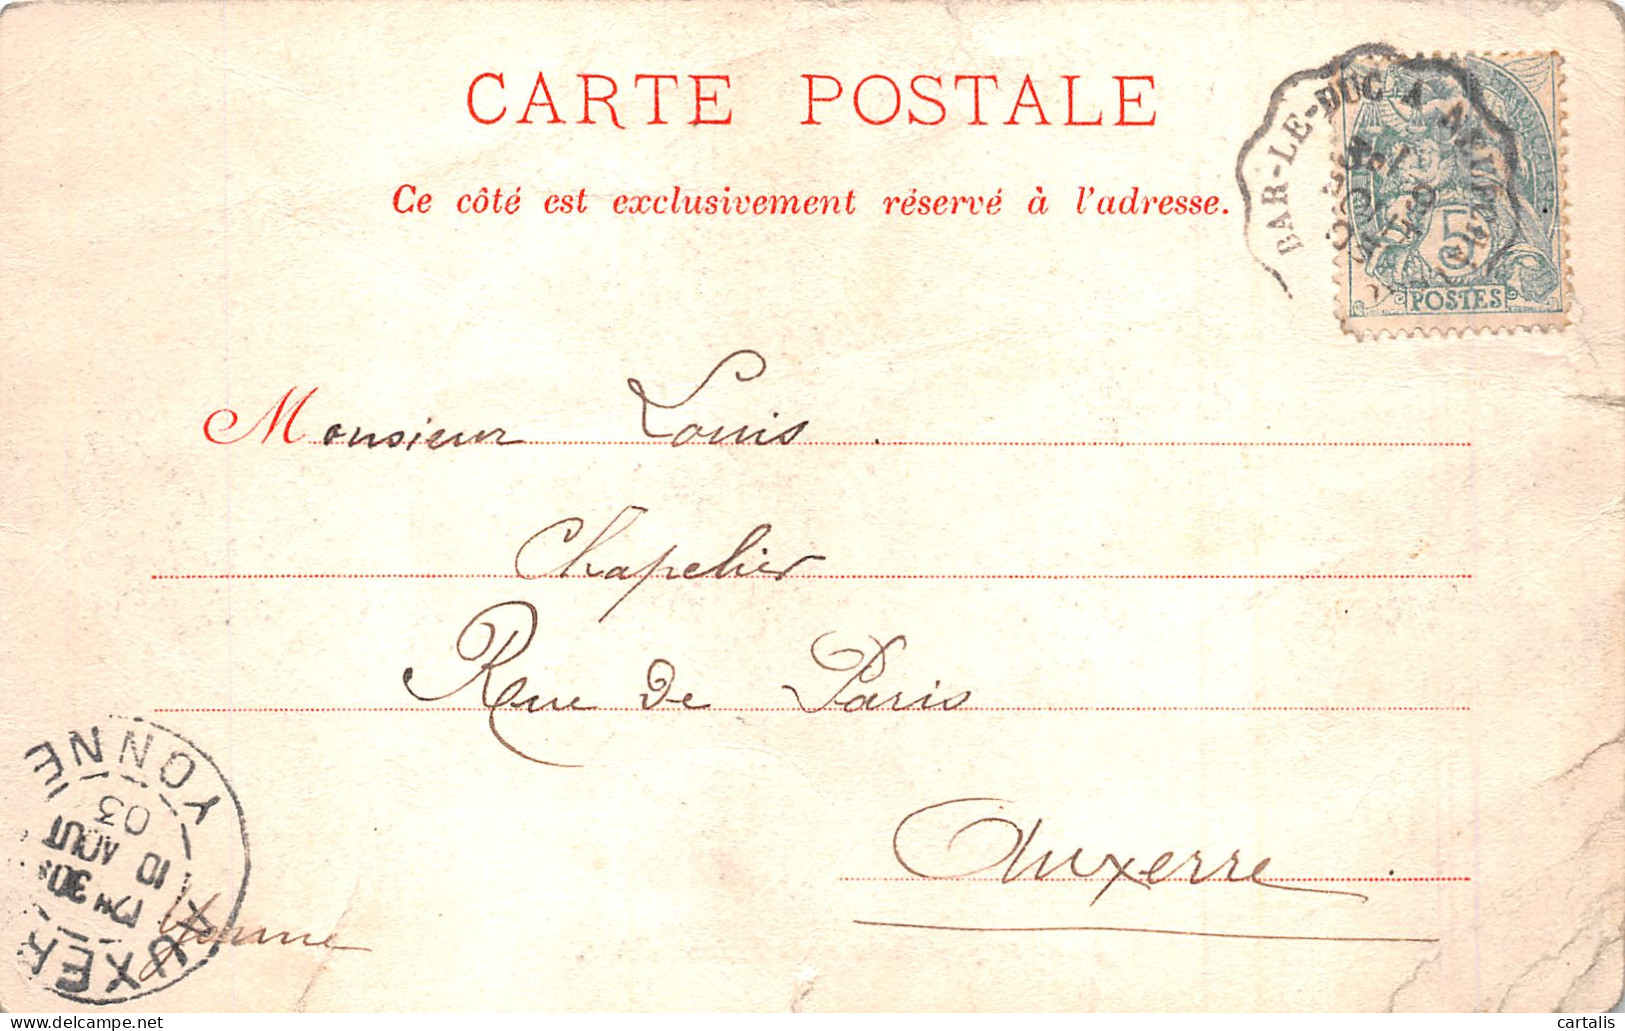 CARTE POSTALE
Ce côté est exclusivement réservé à l'adresse.
BAR-LE-DUC A
5
POSTES
Monsieur Louis
Chapelier
Rue de Paris
Auxerre
Yonne
YONNE
03
10 AOUT
AUXER
delcampe.net
cartalis